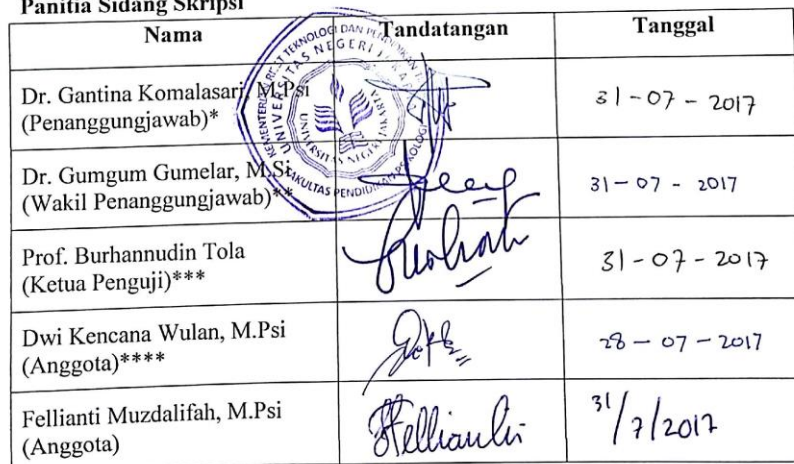 Panitia Sidang Skripsi
Nama Tandatangan Tanggal
Dr. Gantina Komalasari, M.Psi
(Penanggungjawab)*
31-07-2017
Dr. Gumgum Gumelar, M.Si
(Wakil Penanggungjawab)**
31-07-2017
Prof. Burhannudin Tola
(Ketua Penguji)***
31-07-2017
Dwi Kencana Wulan, M.Psi
(Anggota)****
28-07-2017
Fellianti Muzdalifah, M.Psi
(Anggota)
Fellianti
31/7/2017
UNIVERSITAS NEGERI JAKARTA
FAKULTAS PENDIDIKAN PSIKOLOGI